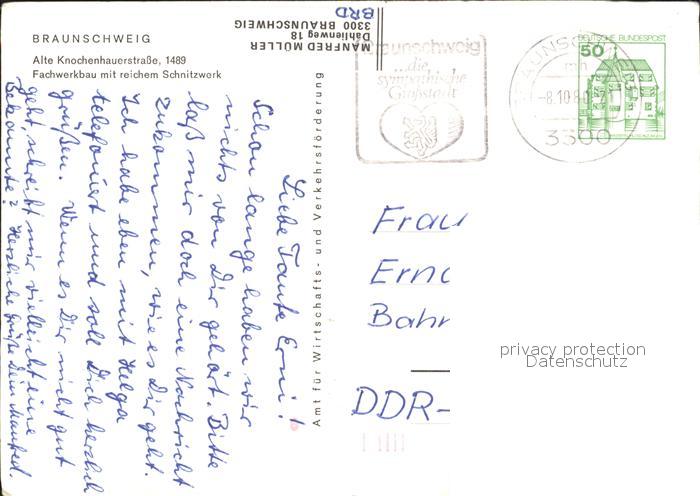 BRAUNSCHWEIG
Alte Knochenhauerstraße, 1489
Fachwerkbau mit reichem Schnitzwerk
MANFRED MÜLLER
Dahlienweg 18
3300 BRAUNSCHWEIG
BRD
Liebe Tante Erni!
Schon lange haben wir
nichts von Dir gehört. Bitte
laß mir doch eine Nachricht
zukommen, wie es Dir geht.
Ich habe eben mit Helga
telefoniert und soll Dich herzlich
grüßen. Wenn es Dir nicht gut
geht, schreibt mir vielleicht eine
Bekannte? Herzliche Grüße Dein Manfred.
Amt für Wirtschafts- und Verkehrsförderung
Braunschweig
die
sympathische
Großstadt
BRAUNSCHWEIG
-8.10.80
3300
DEUTSCHE BUNDESPOST
50
Frau
Erna
Bahn
DDR-
privacy protection
Datenschutz